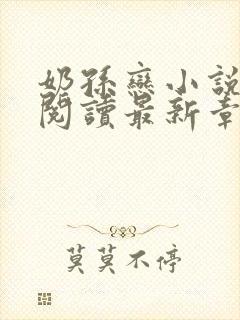 奶孫戀小說
閱讀最新章
莫莫不停